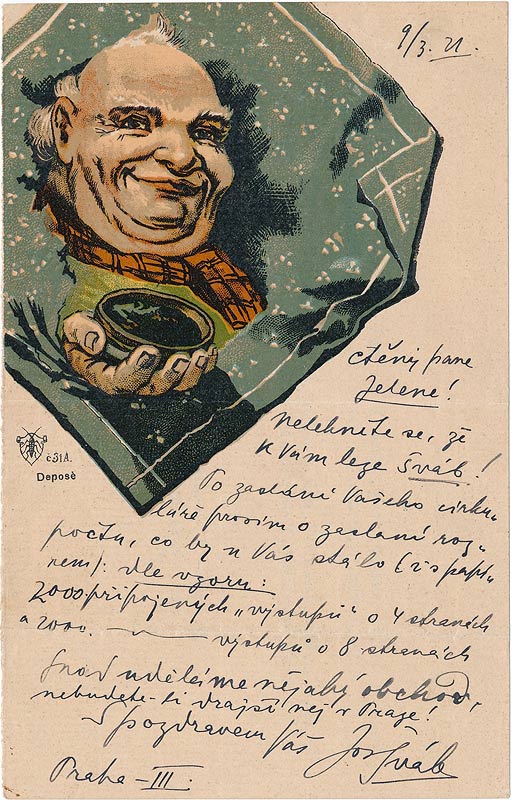 9/3. 21.
ctěný pane
Jelene!
nelekněte se, že
k Vám leze Šváb!
Po zaslání Vašeho cirku„
láře prosím o zaslání roz„
počtu, co by u Vás stálo (i s papí„
rem): dle vzoru:
2000 připojených „výstupů" o 4 stranách
a 2000. — výstupů o 8 stranách
Snad uděláme nějaký obchod,
nebudete-li dražší nej v Praze!
S pozdravem Váš Jos Šváb
Praha-III.
č31A.
Deposè